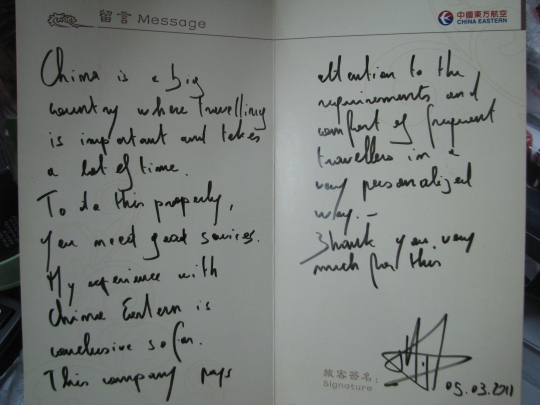 留言 Message
China is a big
country where travelling
is important and takes
a lot of time.
To do this properly,
you need good services.
My experience with
China Eastern is
conclusive so far.
This company pays
中國東方航空
CHINA EASTERN
attention to the
requirements and
comfort of frequent
travellers in a
very personalized
way.-
Thank you very
much for this
旅客签名:
Signature
05.03.2011